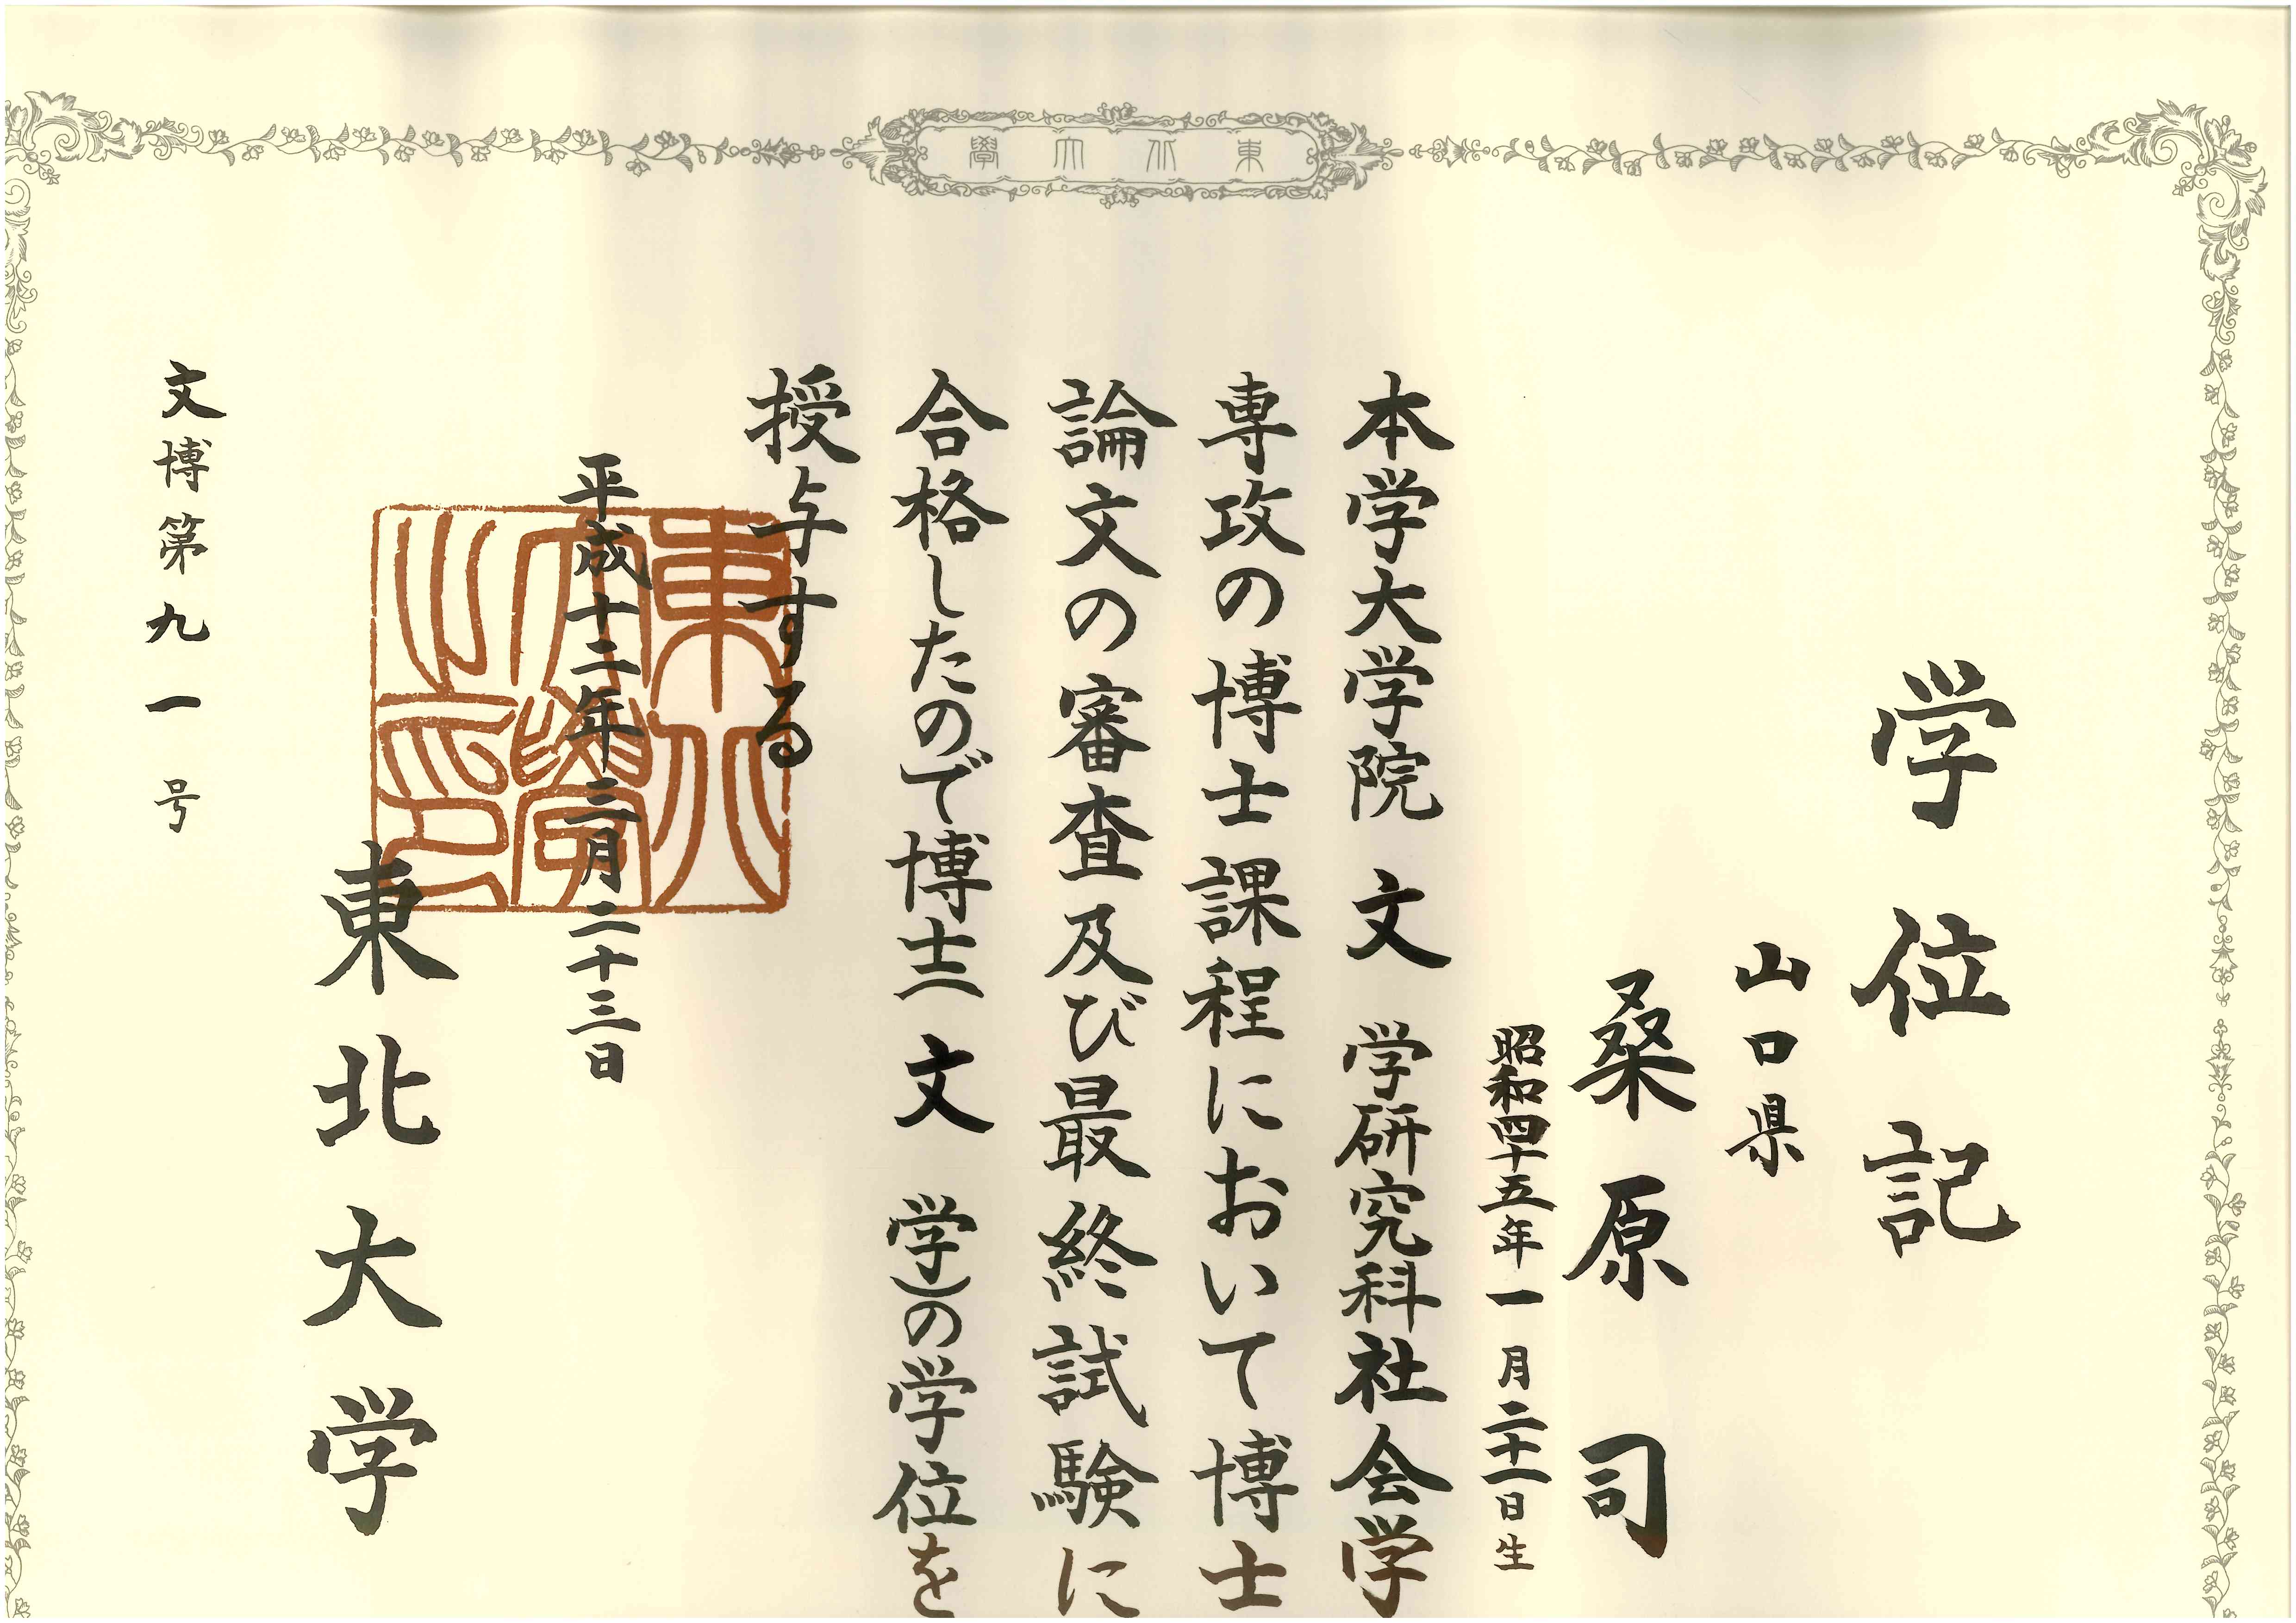 東北大學
学位記
山口県
桑原司
昭和四十五年一月二十一日生
本学大学院文学研究科社会学
専攻の博士課程において博士
論文の審査及び最終試験に
合格したので博士(文学)の学位を
授与する
平成十二年三月二十三日
東北大学
東北大學之印
文博第九一号